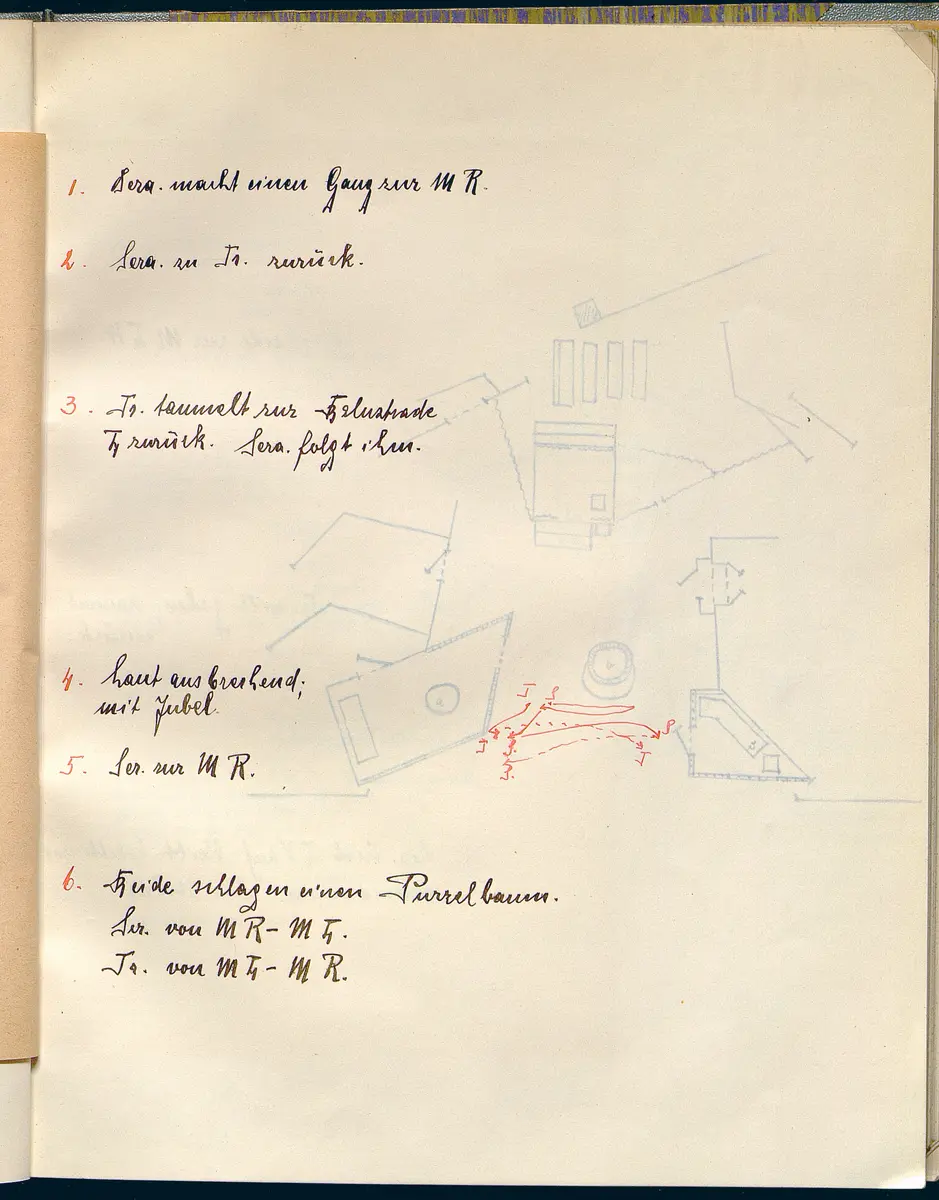 1. Sera. macht einen Gang zur M R.
2. Sera. zu Tr. zurück.
3. Tr. taumelt zur Balustrade
L zurück. Sera. folgt ihm.
4. laut ausbrechend;
mit Jubel.
5. Ser. zur M R.
6. Beide schlagen einen Purzelbaum.
Ser. von M R - M L.
Tr. von M L - M R.